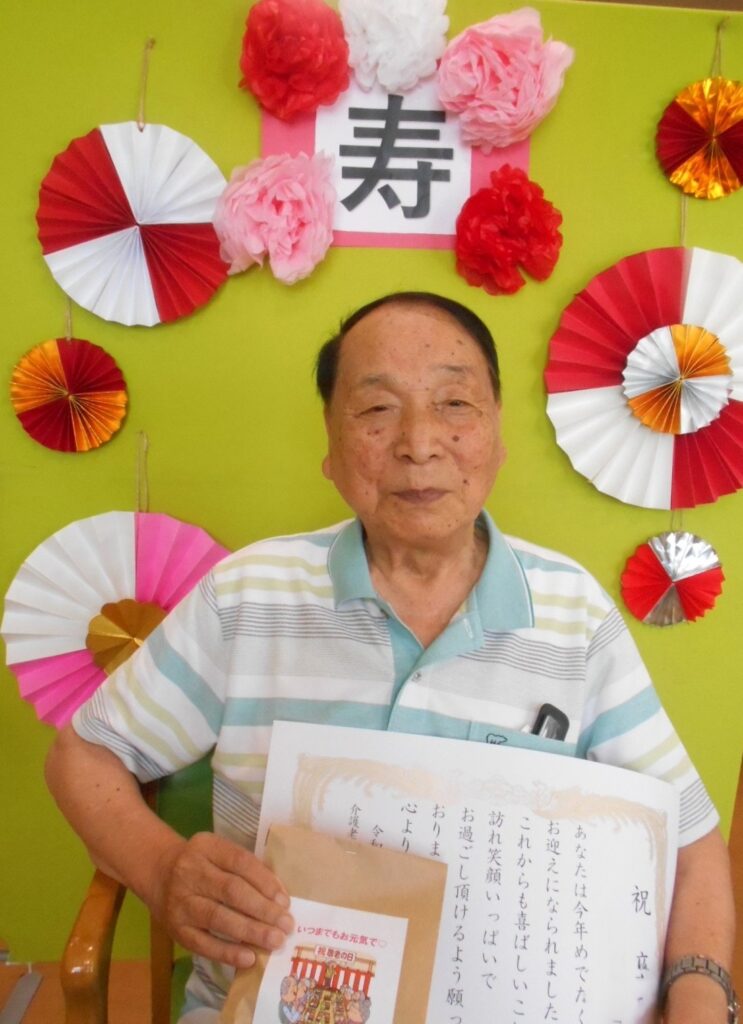 寿
祝
あなたは今年めでたく
お迎えになられました
これからも喜ばしいこ
訪れ笑顔いっぱいで
お過ごし頂けるよう願っ
おりま
心より
令和
介護老
いつまでもお元気で♡
祝 敬老の日